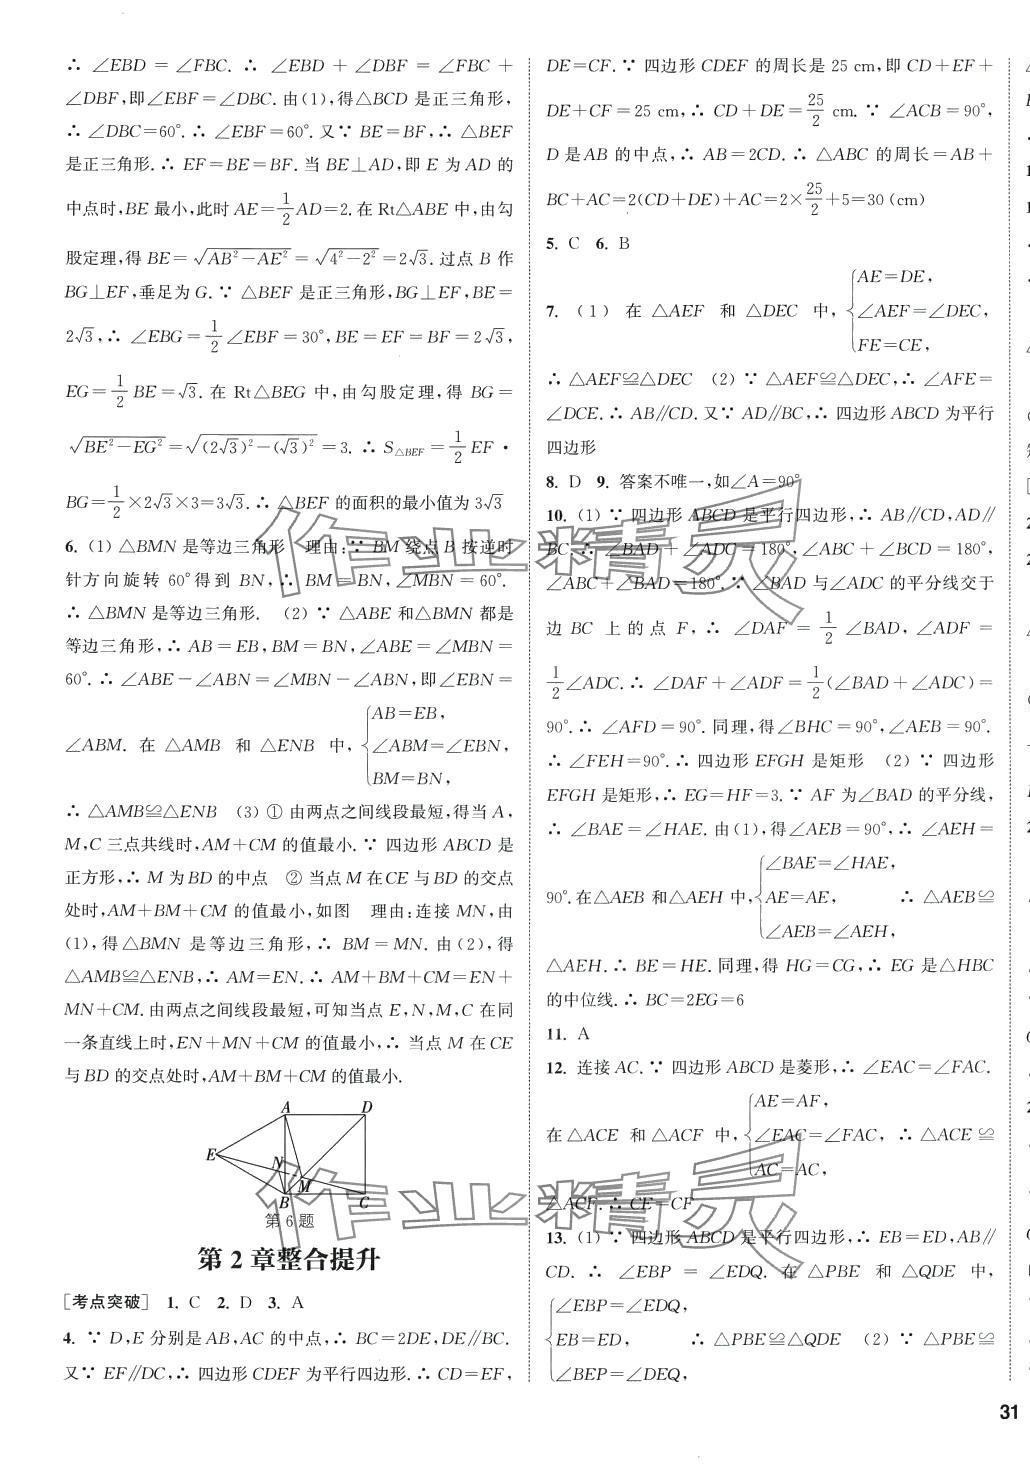 ∴ ∠EBD = ∠FBC. ∴ ∠EBD + ∠DBF = ∠FBC +
∠DBF,即∠EBF=∠DBC. 由(1),得△BCD 是正三角形,
∴ ∠DBC=60°. ∴ ∠EBF=60°. 又∵ BE=BF,∴ △BEF
是正三角形. ∴ EF=BE=BF. 当 BE⊥AD,即 E 为 AD 的
中点时,BE 最小,此时 AE=1/2 AD=2. 在 Rt△ABE 中,由勾
股定理,得 BE=√(AB²-AE²)=√(4²-2²)=2√3. 过点 B 作
BG⊥EF,垂足为 G. ∵ △BEF 是正三角形,BG⊥EF,BE=
2√3,∴ ∠EBG=1/2∠EBF=30°,BE=EF=BF=2√3,
EG=1/2 BE=√3. 在 Rt△BEG 中,由勾股定理,得 BG=
√(BE²-EG²)=√((2√3)²-(√3)²)=3. ∴ S△BEF=1/2 EF·
BG=1/2×2√3×3=3√3. ∴ △BEF 的面积的最小值为 3√3
6. (1) △BMN 是等边三角形 理由:∵ BM 绕点 B 按逆时
针方向旋转 60°得到 BN,∴ BM=BN,∠MBN=60°.
∴ △BMN 是等边三角形. (2) ∵ △ABE 和△BMN 都是
等边三角形,∴ AB=EB,BM=BN,∠ABE=∠MBN=
60°. ∴ ∠ABE-∠ABN=∠MBN-∠ABN,即∠EBN=
∠ABM. 在 △AMB 和 △ENB 中, {AB=EB, ∠ABM=∠EBN, BM=BN,
∴ △AMB≌△ENB (3) ① 由两点之间线段最短,得当 A,
M,C 三点共线时,AM+CM 的值最小. ∵ 四边形 ABCD 是
正方形,∴ M 为 BD 的中点 ② 当点 M 在 CE 与 BD 的交点
处时,AM+BM+CM 的值最小,如图 理由:连接 MN,由
(1),得△BMN 是等边三角形,∴ BM=MN. 由(2),得
△AMB≌△ENB,∴ AM=EN. ∴ AM+BM+CM=EN+
MN+CM. 由两点之间线段最短,可知当点 E,N,M,C 在同
一条直线上时,EN+MN+CM 的值最小,∴ 当点 M 在 CE
与 BD 的交点处时,AM+BM+CM 的值最小.
A D
E N
M
B C
第 6 题
第 2 章整合提升
[考点突破] 1. C 2. D 3. A
4. ∵ D,E 分别是 AB,AC 的中点,∴ BC=2DE,DE∥BC.
又∵ EF∥DC,∴ 四边形 CDEF 为平行四边形. ∴ CD=EF,
DE=CF. ∵ 四边形 CDEF 的周长是 25 cm,即 CD+EF+
DE+CF=25 cm,∴ CD+DE=25/2 cm. ∵ ∠ACB=90°,
D 是 AB 的中点,∴ AB=2CD. ∴ △ABC 的周长=AB+
BC+AC=2(CD+DE)+AC=2×25/2+5=30 (cm)
5. C 6. B
7. (1) 在 △AEF 和 △DEC 中, {AE=DE, ∠AEF=∠DEC, FE=CE,
∴ △AEF≌△DEC (2) ∵ △AEF≌△DEC,∴ ∠AFE=
∠DCE. ∴ AB∥CD. 又∵ AD∥BC,∴ 四边形 ABCD 为平行
四边形
8. D 9. 答案不唯一,如∠A=90°
10. (1) ∵ 四边形 ABCD 是平行四边形,∴ AB∥CD,AD∥
BC. ∴ ∠BAD+∠ADC=180°,∠ABC+∠BCD=180°,
∠ABC+∠BAD=180°. ∵ ∠BAD 与∠ADC 的平分线交于
边 BC 上的点 F,∴ ∠DAF=1/2∠BAD,∠ADF=
1/2∠ADC. ∴ ∠DAF+∠ADF=1/2(∠BAD+∠ADC)=
90°. ∴ ∠AFD=90°. 同理,得∠BHC=90°,∠AEB=90°.
∴ ∠FEH=90°. ∴ 四边形 EFGH 是矩形 (2) ∵ 四边形
EFGH 是矩形,∴ EG=HF=3. ∵ AF 为∠BAD 的平分线,
∴ ∠BAE=∠HAE. 由(1),得∠AEB=90°,∴ ∠AEH=
90°. 在△AEB 和△AEH 中, {∠BAE=∠HAE, AE=AE, ∠AEB=∠AEH, ∴ △AEB≌
△AEH. ∴ BE=HE. 同理,得 HG=CG,∴ EG 是△HBC
的中位线. ∴ BC=2EG=6
11. A
12. 连接 AC. ∵ 四边形 ABCD 是菱形,∴ ∠EAC=∠FAC.
在△ACE 和△ACF 中, {AE=AF, ∠EAC=∠FAC, AC=AC, ∴ △ACE≌
△ACF. ∴ CE=CF
13. (1) ∵ 四边形 ABCD 是平行四边形,∴ EB=ED,AB∥
CD. ∴ ∠EBP=∠EDQ. 在 △PBE 和 △QDE 中,
{∠EBP=∠EDQ, EB=ED, ∠BEP=∠DEQ, ∴ △PBE≌△QDE (2) ∵ △PBE≌
31
作业精灵
作业精灵